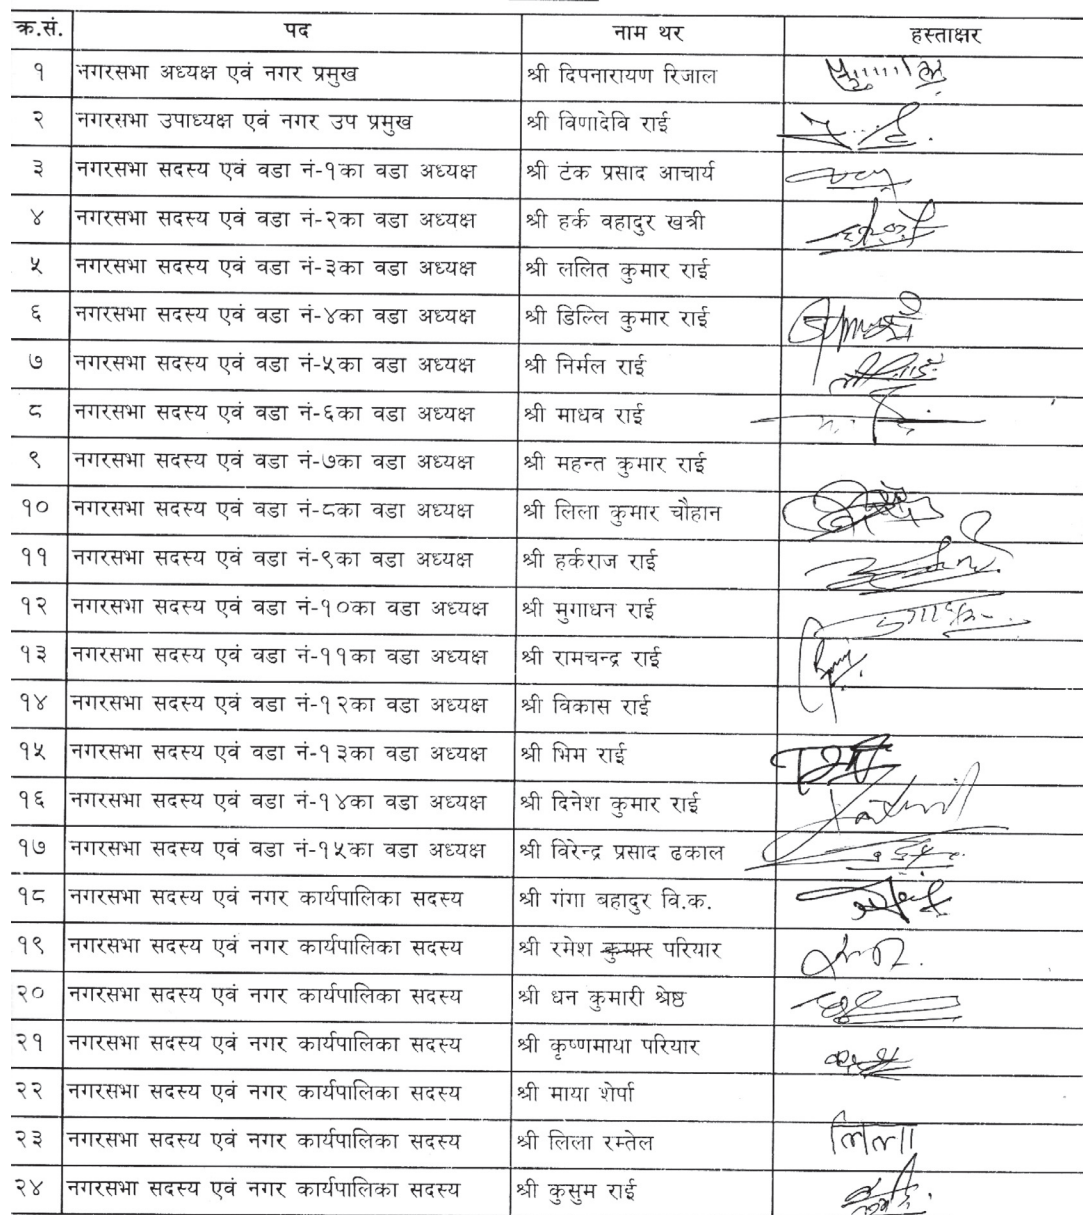 क्र.सं. पद नाम थर हस्ताक्षर
१ नगरसभा अध्यक्ष एवं नगर प्रमुख श्री दिपनारायण रिजाल
२ नगरसभा उपाध्यक्ष एवं नगर उप प्रमुख श्री विणादेवि राई
३ नगरसभा सदस्य एवं वडा नं-१का वडा अध्यक्ष श्री टंक प्रसाद आचार्य
४ नगरसभा सदस्य एवं वडा नं-२का वडा अध्यक्ष श्री हर्क वहादुर खत्री
५ नगरसभा सदस्य एवं वडा नं-३का वडा अध्यक्ष श्री ललित कुमार राई
६ नगरसभा सदस्य एवं वडा नं-४का वडा अध्यक्ष श्री डिल्लि कुमार राई
७ नगरसभा सदस्य एवं वडा नं-५का वडा अध्यक्ष श्री निर्मल राई
८ नगरसभा सदस्य एवं वडा नं-६का वडा अध्यक्ष श्री माधव राई
९ नगरसभा सदस्य एवं वडा नं-७का वडा अध्यक्ष श्री महन्त कुमार राई
१० नगरसभा सदस्य एवं वडा नं-८का वडा अध्यक्ष श्री लिला कुमार चौहान
११ नगरसभा सदस्य एवं वडा नं-९का वडा अध्यक्ष श्री हर्कराज राई
१२ नगरसभा सदस्य एवं वडा नं-१०का वडा अध्यक्ष श्री मुगाधन राई
१३ नगरसभा सदस्य एवं वडा नं-११का वडा अध्यक्ष श्री रामचन्द्र राई
१४ नगरसभा सदस्य एवं वडा नं-१२का वडा अध्यक्ष श्री विकास राई
१५ नगरसभा सदस्य एवं वडा नं-१३का वडा अध्यक्ष श्री भिम राई
१६ नगरसभा सदस्य एवं वडा नं-१४का वडा अध्यक्ष श्री दिनेश कुमार राई
१७ नगरसभा सदस्य एवं वडा नं-१५का वडा अध्यक्ष श्री विरेन्द्र प्रसाद ढकाल
१८ नगरसभा सदस्य एवं नगर कार्यपालिका सदस्य श्री गंगा बहादुर वि.क.
१९ नगरसभा सदस्य एवं नगर कार्यपालिका सदस्य श्री रमेश कुमार परियार
२० नगरसभा सदस्य एवं नगर कार्यपालिका सदस्य श्री धन कुमारी श्रेष्ठ
२१ नगरसभा सदस्य एवं नगर कार्यपालिका सदस्य श्री कृष्णमाया परियार
२२ नगरसभा सदस्य एवं नगर कार्यपालिका सदस्य श्री माया शेर्पा
२३ नगरसभा सदस्य एवं नगर कार्यपालिका सदस्य श्री लिला रम्तेल लिला
२४ नगरसभा सदस्य एवं नगर कार्यपालिका सदस्य श्री कुसुम राई